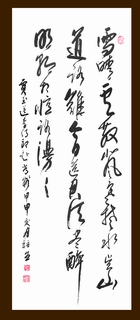 雪晴雲散北風寒楚水吳山
道路難今日送君須盡醉
明朝相憶路漫々
賈至送李侍郎赴常州甲申